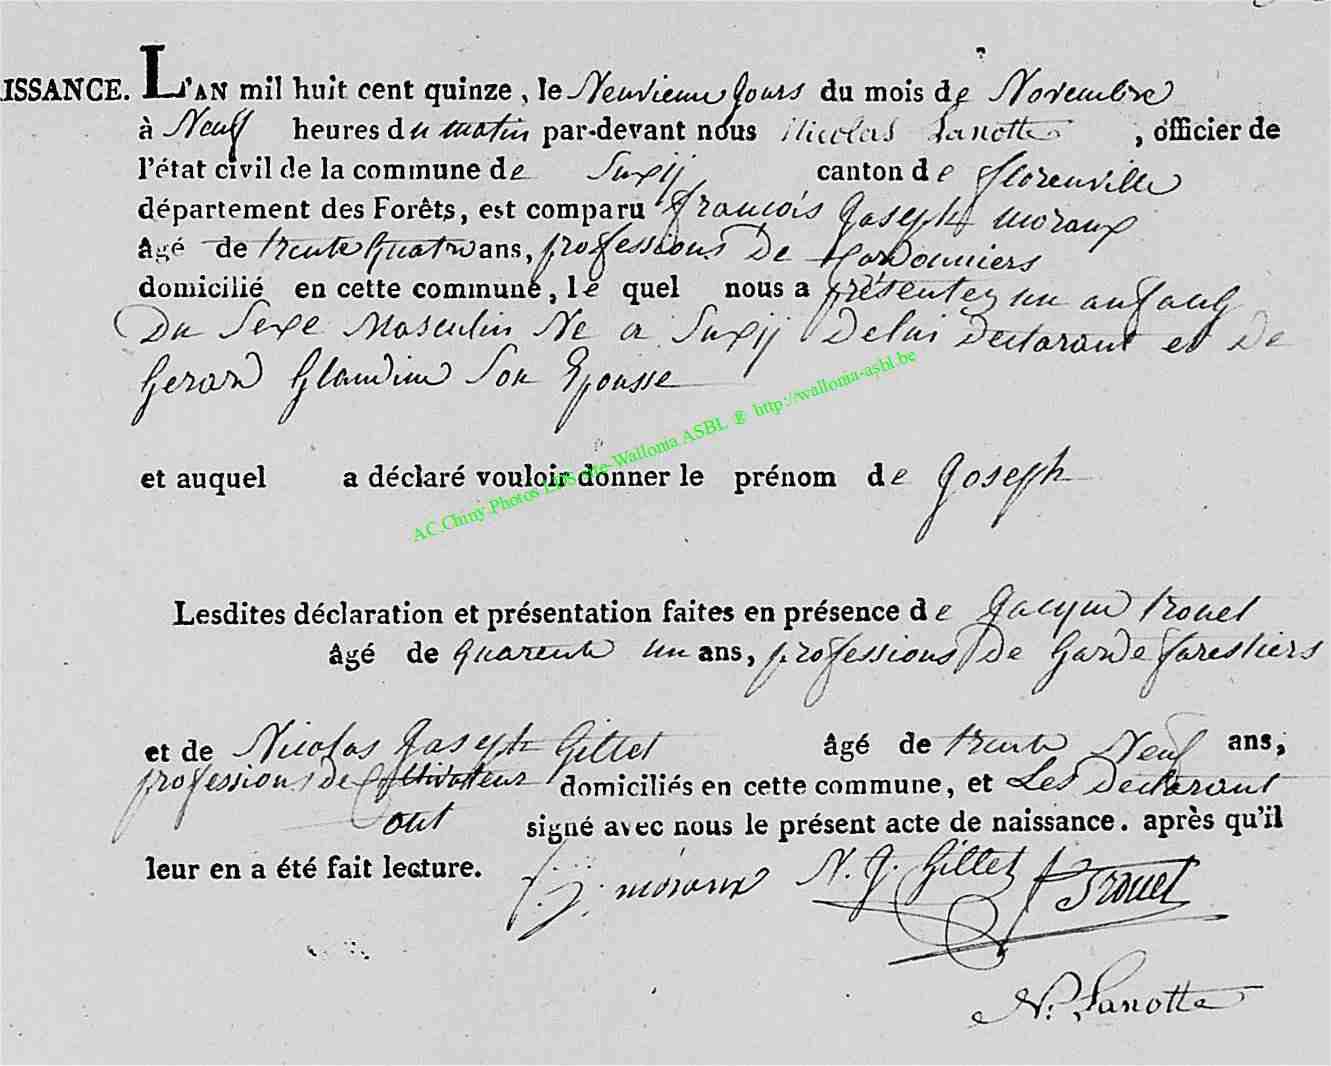 ISSANCE. L'AN mil huit cent quinze, le Neuvieme Jours du mois de Novembre
à Neuf heures du matin par-devant nous Nicolas Lanotte, officier de
l'état civil de la commune de Suxij canton de florenville
département des Forêts, est comparu françois Joseph moraux
âgé de trente Quatre ans, professions De Cordonniers
domicilié en cette commune, le quel nous a présentez un anfant
Du Sexe Masculin Né a Suxij Delui Declarant et De
Gerard Glaudine Son Epousse
AC.Chiny.Photos LDS site-Wallonia ASBL @ http://wallonia-asbl.be
et auquel a déclaré vouloir donner le prénom de Joseph
Lesdites déclaration et présentation faites en présence de Jacque trouet
âgé de Quarente un ans, professions De Garde forestiers
et de Nicolas Joseph Gillet âgé de trente Neuf ans,
professions De Cultivateur domiciliés en cette commune, et Les Declarant
ont signé avec nous le présent acte de naissance. après qu'il
leur en a été fait lecture. f. j. moraux N. J. Gillet J Trouet
N. Lanotte